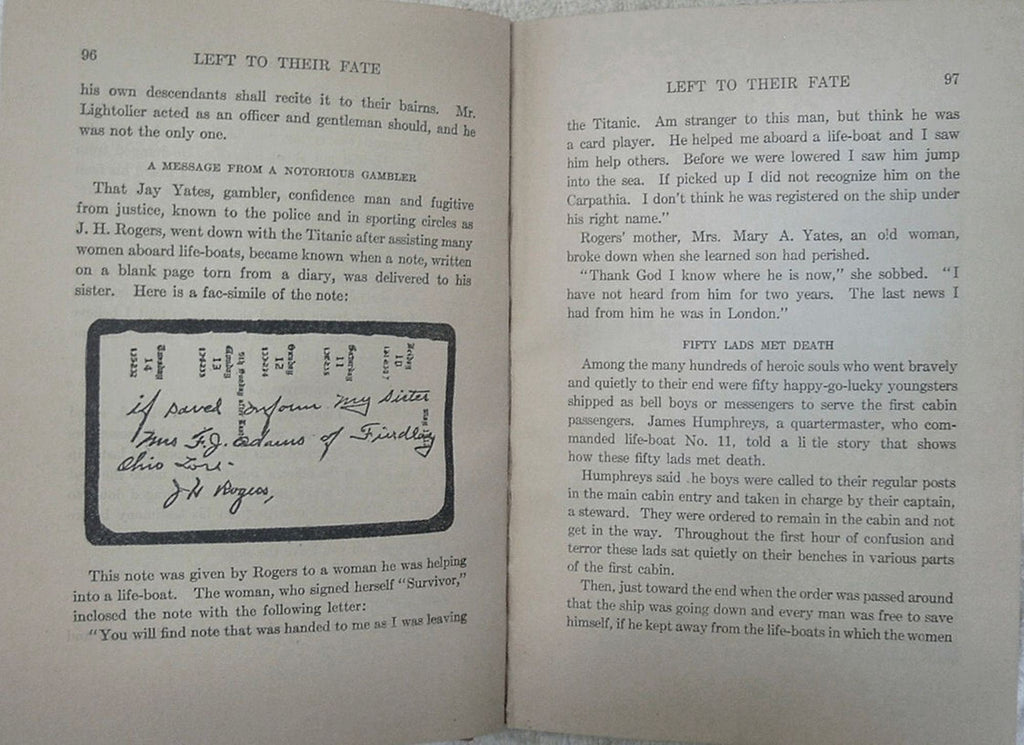 96
LEFT TO THEIR FATE
his own descendants shall recite it to their bairns. Mr.
Lightoller acted as an officer and gentleman should, and he
was not the only one.
A MESSAGE FROM A NOTORIOUS GAMBLER
That Jay Yates, gambler, confidence man and fugitive
from justice, known to the police and in sporting circles as
J. H. Rogers, went down with the Titanic after assisting many
women aboard life-boats, became known when a note, written
on a blank page torn from a diary, was delivered to his
sister. Here is a fac-simile of the note:
14
13
12
11
10
if saved inform my sister
Mrs F.J. Adams of Findlay
Ohio Lost-
J H Rogers,
This note was given by Rogers to a woman he was helping
into a life-boat. The woman, who signed herself "Survivor,"
inclosed the note with the following letter:
"You will find note that was handed to me as I was leaving
LEFT TO THEIR FATE
97
the Titanic. Am stranger to this man, but think he was
a card player. He helped me aboard a life-boat and I saw
him help others. Before we were lowered I saw him jump
into the sea. If picked up I did not recognize him on the
Carpathia. I don't think he was registered on the ship under
his right name."
Rogers' mother, Mrs. Mary A. Yates, an old woman,
broke down when she learned son had perished.
"Thank God I know where he is now," she sobbed. "I
have not heard from him for two years. The last news I
had from him he was in London."
FIFTY LADS MET DEATH
Among the many hundreds of heroic souls who went bravely
and quietly to their end were fifty happy-go-lucky youngsters
shipped as bell boys or messengers to serve the first cabin
passengers. James Humphreys, a quartermaster, who com-
manded life-boat No. 11, told a li tle story that shows
how these fifty lads met death.
Humphreys said .he boys were called to their regular posts
in the main cabin entry and taken in charge by their captain,
a steward. They were ordered to remain in the cabin and not
get in the way. Throughout the first hour of confusion and
terror these lads sat quietly on their benches in various parts
of the first cabin.
Then, just toward the end when the order was passed around
that the ship was going down and every man was free to save
himself, if he kept away from the life-boats in which the women